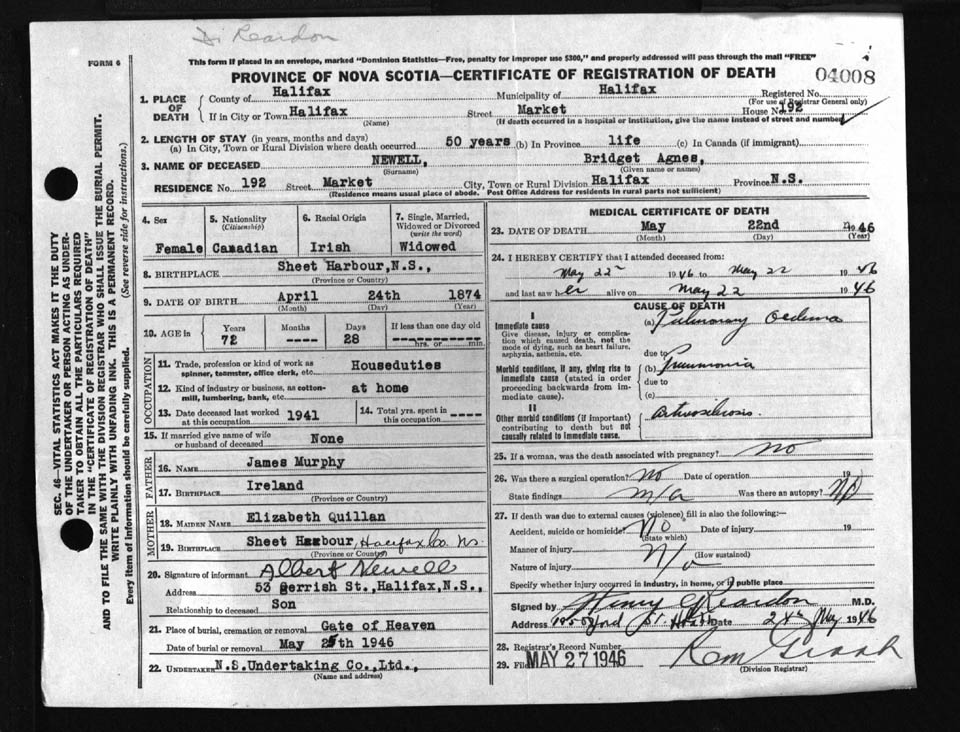 Dr Reardon
FORM 6
This form if placed in an envelope, marked "Dominion Statistics—Free, penalty for improper use $300," and properly addressed will pass through the mail "FREE"
PROVINCE OF NOVA SCOTIA—CERTIFICATE OF REGISTRATION OF DEATH
04008
SEC. 46—VITAL STATISTICS ACT MAKES IT THE DUTY
OF THE UNDERTAKER OR PERSON ACTING AS UNDER-
TAKER TO OBTAIN ALL THE PARTICULARS REQUIRED
IN THE "CERTIFICATE OF REGISTRATION OF DEATH"
AND TO FILE THE SAME WITH THE DIVISION REGISTRAR WHO SHALL ISSUE THE BURIAL PERMIT.
WRITE PLAINLY WITH UNFADING INK. THIS IS A PERMANENT RECORD.
Every item of information should be carefully supplied. (See reverse side for instructions.)
1. PLACE OF DEATH
County of Halifax Municipality of Halifax Registered No.
(For use of Registrar General only)
If in City or Town Halifax Street Market House No. 192
(Name) (If death occurred in a hospital or institution, give the name instead of street and number)
2. LENGTH OF STAY (in years, months and days)
(a) In City, Town or Rural Division where death occurred 50 years (b) In Province life (c) In Canada (if immigrant)
3. NAME OF DECEASED NEWELL, Bridget Agnes,
(Surname) (Given name or names)
RESIDENCE No. 192 Street Market City, Town or Rural Division Halifax Province N.S.
(Residence means usual place of abode. Post Office Address for residents in rural parts not sufficient)
4. Sex Female
5. Nationality (Citizenship) Canadian
6. Racial Origin Irish
7. Single, Married, Widowed or Divorced (write the word) Widowed
8. BIRTHPLACE Sheet Harbour, N.S.,
(Province or Country)
9. DATE OF BIRTH April 24th 1874
(Month) (Day) (Year)
10. AGE in Years 72 Months ---- Days 28 If less than one day old hrs. or min.
OCCUPATION
11. Trade, profession or kind of work as spinner, teamster, office clerk, etc. Houseduties
12. Kind of industry or business, as cotton-mill, lumbering, bank, etc. at home
13. Date deceased last worked at this occupation 1941
14. Total yrs. spent in this occupation ----
15. If married give name of wife or husband of deceased None
FATHER
16. NAME James Murphy
17. BIRTHPLACE Ireland
(Province or Country)
MOTHER
18. MAIDEN NAME Elizabeth Quillan
19. BIRTHPLACE Sheet Harbour, Halifax Co. N.S.
(Province or Country)
20. Signature of informant Albert Newell
Address 53 Gerrish St., Halifax, N.S.,
Relationship to deceased Son
21. Place of burial, cremation or removal Gate of Heaven
Date of burial or removal May 25th 1946
22. UNDERTAKER N.S. Undertaking Co., Ltd.,
(Name and address)
MEDICAL CERTIFICATE OF DEATH
23. DATE OF DEATH May 22nd 1946
(Month) (Day) (Year)
24. I HEREBY CERTIFY that I attended deceased from:
May 22 1946 to May 22 1946
and last saw her alive on May 22 1946
CAUSE OF DEATH
I
Immediate cause
Give disease, injury or complication which caused death, not the mode of dying, such as heart failure, asphyxia, asthenia, etc.
(a) Pulmonary Oedema
due to
Morbid conditions, if any, giving rise to immediate cause (stated in order proceeding backwards from immediate cause).
(b) Pneumonia
due to
(c)
II
Other morbid conditions (if important) contributing to death but not causally related to immediate cause.
25. If a woman, was the death associated with pregnancy? No
26. Was there a surgical operation? No Date of operation 19
State findings n/a Was there an autopsy? No
27. If death was due to external causes (violence) fill in also the following:—
Accident, suicide or homicide? No Date of injury 19
(State which)
Manner of injury N/a
(How sustained)
Nature of injury
Specify whether injury occurred in industry, in home, or in public place
Signed by Henry G Reardon M.D.
Address Date May 1946
28. Registrar's Record Number
29. Filed MAY 27 1946
(Division Registrar)